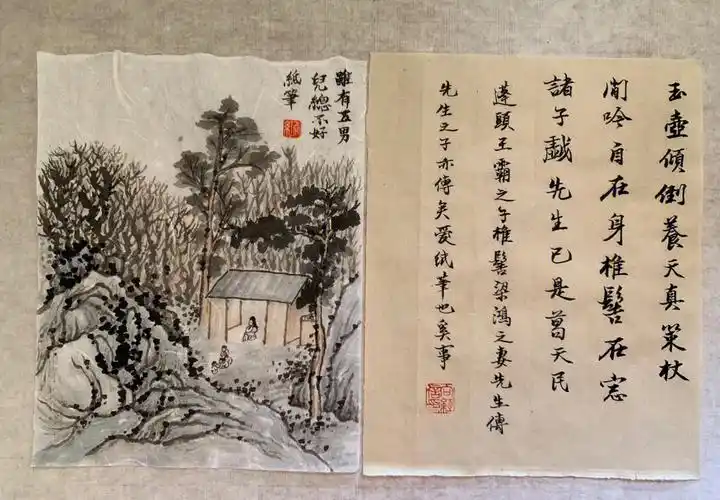 雖有五男
兒總不好
紙筆
玉壺傾倒養天真策杖
閒吟自在身椎髻石窓
諸子戱先生已是葛天民
蓬頭王霸之子椎髻梁鴻之妻先生傳
先生之子亦傳矣愛紙筆也奚事